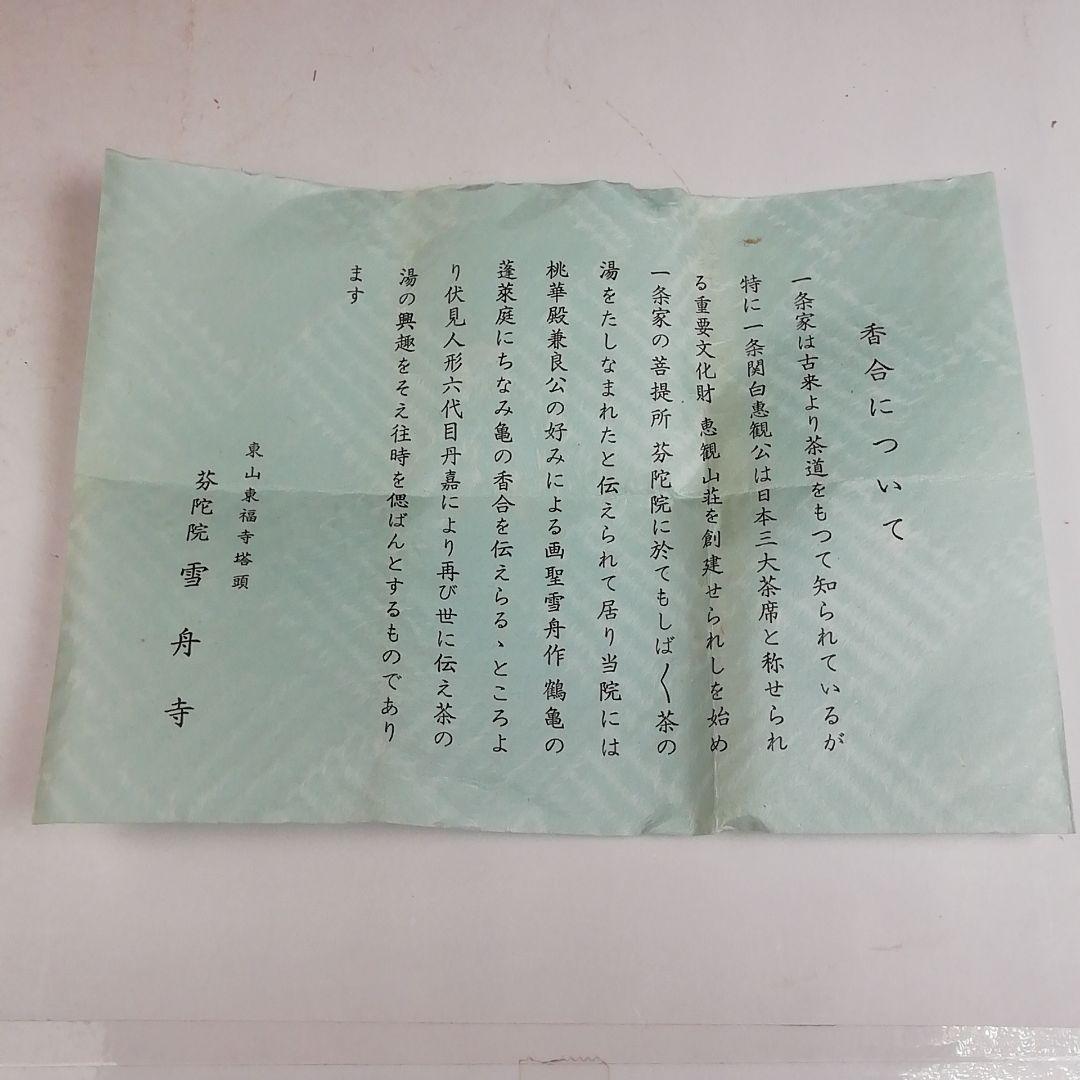 香合について
一条家は古来より茶道をもつて知られているが
特に一条関白惠観公は日本三大茶席と称せられ
る重要文化財 惠観山荘を創建せられしを始め
一条家の菩提所 芬陀院に於てもしば〳〵茶の
湯をたしなまれたと伝えられて居り当院には
桃華殿兼良公の好みによる画聖雪舟作 鶴亀の
蓬萊庭にちなみ亀の香合を伝えらるゝところよ
り伏見人形六代目丹嘉により再び世に伝え茶の
湯の興趣をそえ往時を偲ばんとするものであり
ます
東山東福寺塔頭
芬陀院 雪舟寺